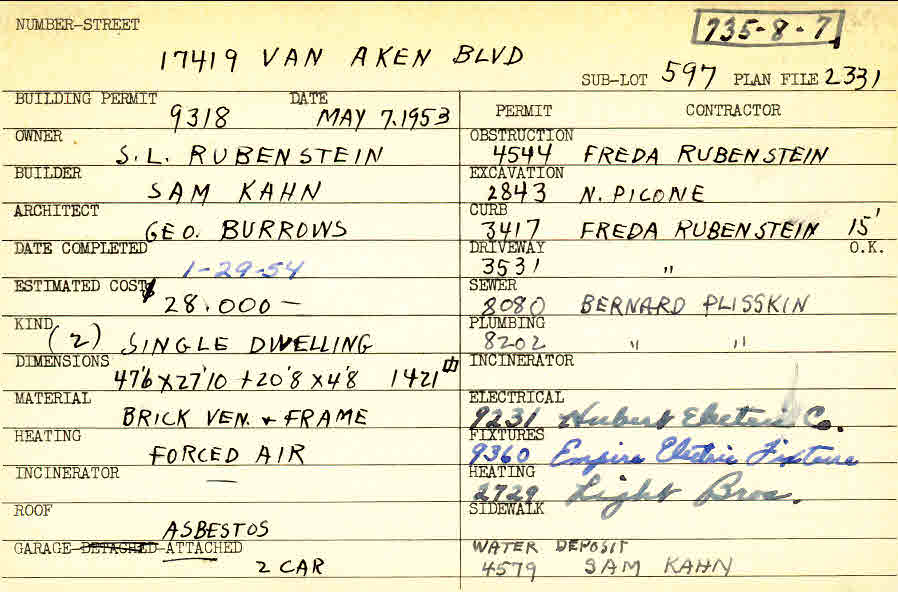 NUMBER-STREET
735-8-7
17419 VAN AKEN BLVD
SUB-LOT 597 PLAN FILE 2331
BUILDING PERMIT 9318 DATE MAY 7, 1953
OWNER S.L. RUBENSTEIN
BUILDER SAM KAHN
ARCHITECT GEO. BURROWS
DATE COMPLETED 1-29-54
ESTIMATED COST $ 28,000 —
KIND (2) SINGLE DWELLING
DIMENSIONS 47'6 X 27'10 + 20'8 X 4'8 1421
MATERIAL BRICK VEN. + FRAME
HEATING FORCED AIR
INCINERATOR —
ROOF ASBESTOS
GARAGE-DETACHED-ATTACHED
2 CAR
PERMIT CONTRACTOR
OBSTRUCTION
4544 FREDA RUBENSTEIN
EXCAVATION
2843 N. PICONE
CURB
3417 FREDA RUBENSTEIN 15'
DRIVEWAY O.K.
3531 "
SEWER
8080 BERNARD PLISSKIN
PLUMBING
8202 " "
INCINERATOR
ELECTRICAL
9231 Hubert Electric Co.
FIXTURES
9360 Empire Electric Fixture
HEATING
2729 Light Bros.
SIDEWALK
WATER DEPOSIT
4579 SAM KAHN